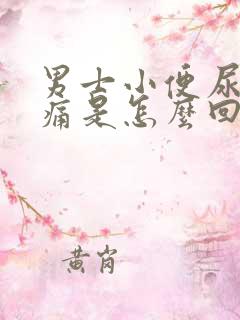 男士小便尿
痛是怎麽回
黄肖